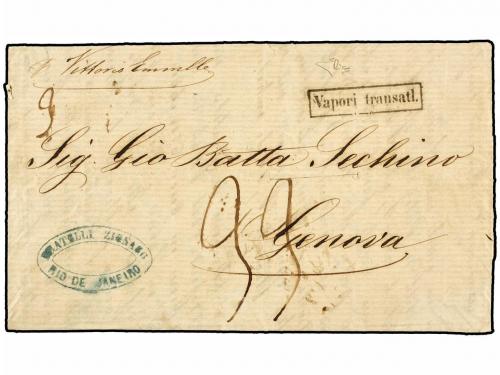 p. Vittorio Emmelle
Vapori transatl.
Sig. Gio Batta Sechino
Genova
FRATELLI
RIO DE JANEIRO